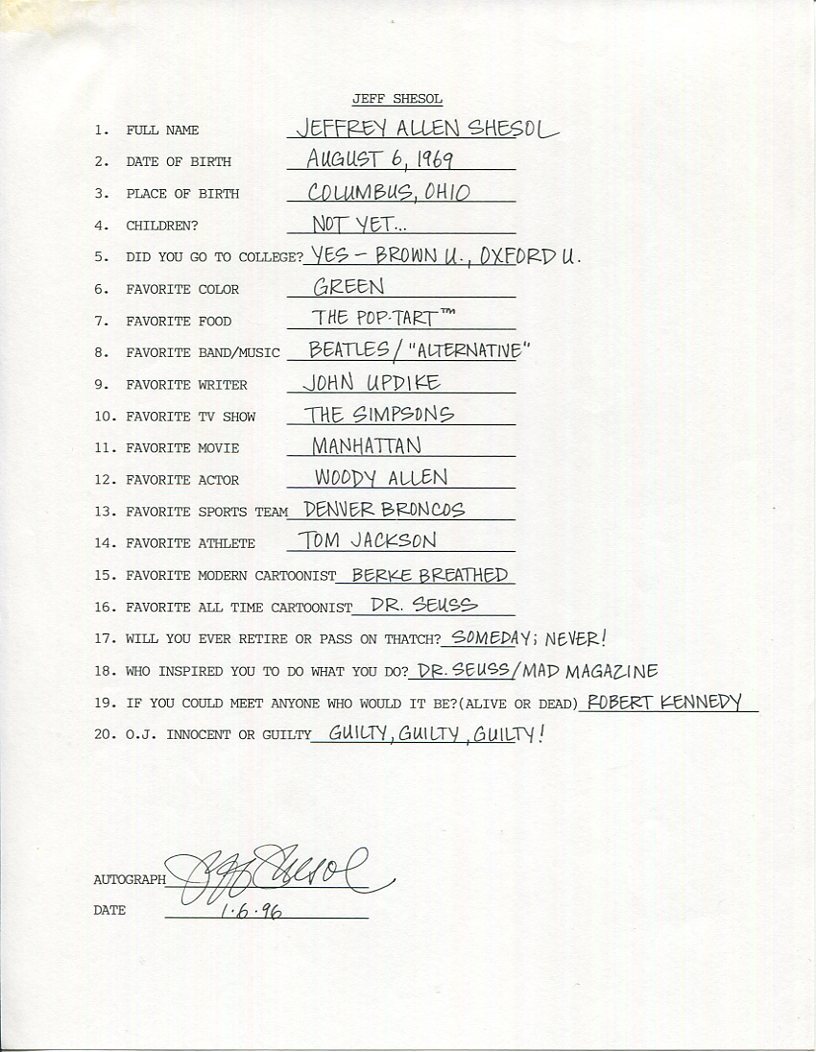 JEFF SHESOL
1. FULL NAME JEFFREY ALLEN SHESOL
2. DATE OF BIRTH AUGUST 6, 1969
3. PLACE OF BIRTH COLUMBUS, OHIO
4. CHILDREN? NOT YET...
5. DID YOU GO TO COLLEGE? YES – BROWN U., OXFORD U.
6. FAVORITE COLOR GREEN
7. FAVORITE FOOD THE POP-TART™
8. FAVORITE BAND/MUSIC BEATLES / "ALTERNATIVE"
9. FAVORITE WRITER JOHN UPDIKE
10. FAVORITE TV SHOW THE SIMPSONS
11. FAVORITE MOVIE MANHATTAN
12. FAVORITE ACTOR WOODY ALLEN
13. FAVORITE SPORTS TEAM DENVER BRONCOS
14. FAVORITE ATHLETE TOM JACKSON
15. FAVORITE MODERN CARTOONIST BERKE BREATHED
16. FAVORITE ALL TIME CARTOONIST DR. SEUSS
17. WILL YOU EVER RETIRE OR PASS ON THATCH? SOMEDAY; NEVER!
18. WHO INSPIRED YOU TO DO WHAT YOU DO? DR. SEUSS/MAD MAGAZINE
19. IF YOU COULD MEET ANYONE WHO WOULD IT BE?(ALIVE OR DEAD) ROBERT KENNEDY
20. O.J. INNOCENT OR GUILTY GUILTY, GUILTY, GUILTY!
AUTOGRAPH Jeff Shesol
DATE 1·6·96